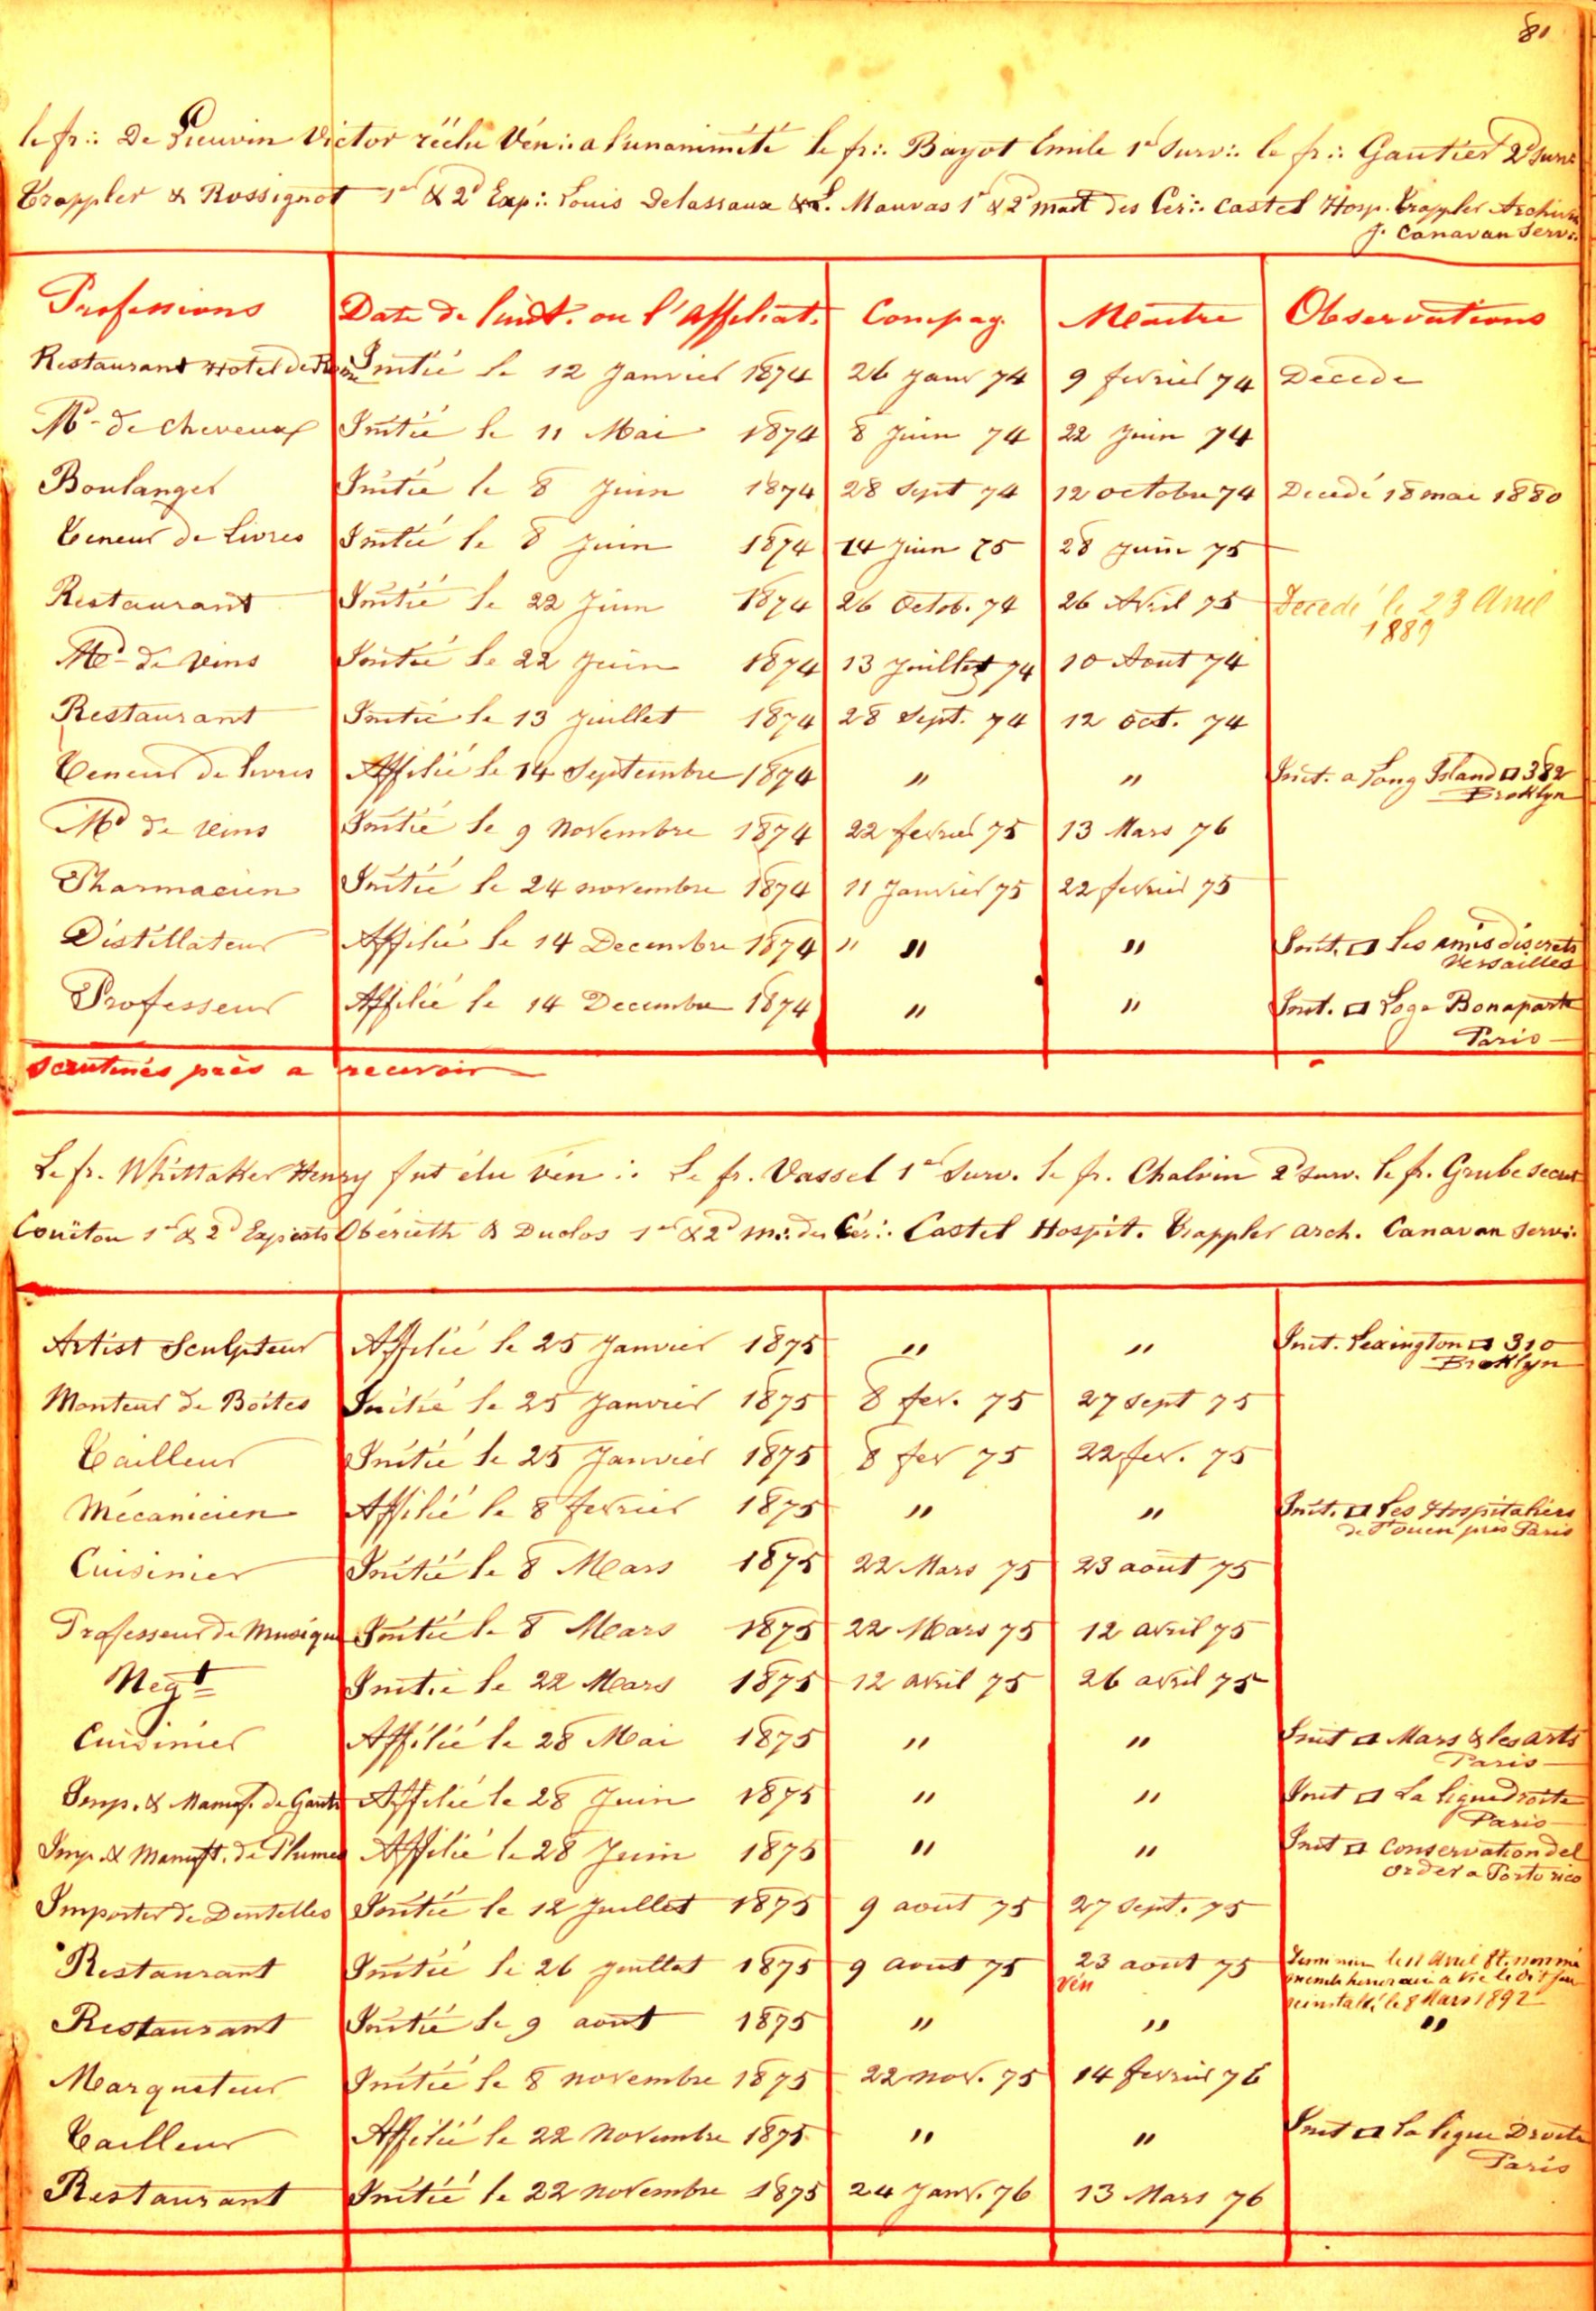 81
le fr∴ De Lieuvin Victor réélu Vén∴ a l'unanimité le fr∴ Bayot Emile 1er Surv∴ le fr∴ Gautier 2d Surv
Trappler & Rossignot 1er & 2d Exp∴ Louis Delassaux & L. Mauvas 1er & 2d mait des Cér∴ Castel Hosp. Trappler Archiv
J. Canavan Serv∴
Professions Date de l'init. ou l'Affiliat. Compag. Maitre Observations
Restaurant Hotel de Initié le 12 Janvier 1874 26 Janv 74 9 fevrier 74 Décédé
Md de cheveux Initié le 11 Mai 1874 8 Juin 74 22 Juin 74
Boulanger Initié le 8 Juin 1874 28 Sept 74 12 octobre 74 Decedé 18 mai 1880
Teneur de Livres Initié le 8 Juin 1874 14 Juin 75 28 Juin 75
Restaurant Initié le 22 Juin 1874 26 Octob. 74 26 Avril 75 Decedé le 23 Avril
1889
Md de Vins Initié le 22 Juin 1874 13 Juillet 74 10 Aout 74
Restaurant Initié le 13 Juillet 1874 28 Sept. 74 12 oct. 74
Teneur de livres Affilié le 14 Septembre 1874 " " Init. a Long Island □ 382
Broklyn
Md de Vins Initié le 9 Novembre 1874 22 fevrier 75 13 Mars 76
Pharmacien Initié le 24 novembre 1874 11 Janvier 75 22 fevrier 75
Distillateur Affilié le 14 Decembre 1874 " " " Init. □ Les amis discrets
Versailles
Professeur Affilié le 14 Decembre 1874 " " Init. □ Loge Bonaparte
Paris
Scrutinés près a recevoir
Le fr. Whittaker Henry fut élu vén∴ Le fr. Vassel 1er Surv. le fr. Chalvin 2d surv. le fr. Grube secret
Couiton 1er & 2d Experts Oberieth & Duclos 1er & 2d M∴ des Cér∴ Castel Hospit. Trappler arch. Canavan Servi.
Artist Sculpteur Affilié le 25 Janvier 1875 " " Init. Lexington □ 310
Broklyn
Monteur de Boites Initié le 25 Janvier 1875 8 fev. 75 27 Sept 75
Tailleur Initié le 25 Janvier 1875 8 fev 75 22 fev. 75
Mécanicien Affilié le 8 fevrier 1875 " " Init. □ Les Hospitaliers
de St Ouen près Paris
Cuisinier Initié le 8 Mars 1875 22 Mars 75 23 août 75
Professeur de Musique Initié le 8 Mars 1875 22 Mars 75 12 avril 75
Negt Initié le 22 Mars 1875 12 avril 75 26 avril 75
Cuisinier Affilié le 28 Mai 1875 " " Init □ Mars & les arts
Paris
Imp. & Manuf. de Gants Affilié le 28 Juin 1875 " " Init □ La ligne droite
Paris
Imp. & Manuft. de Plumes Affilié le 28 Juin 1875 " " Init □ Conservation del
order a Porto rico
Importer de Dentelles Initié le 12 Juillet 1875 9 aout 75 27 Sept. 75
Restaurant Initié le 26 Juillet 1875 9 aout 75 23 aout 75 le 11 Avril nommé
Vén a vie le dit jour
reinstallé le 8 Mars 1892
Restaurant Initié le 9 août 1875 " " "
Marqueteur Initié le 8 novembre 1875 22 nov. 75 14 fevrier 76
Tailleur Affilié le 22 Novembre 1875 " " Init □ La ligne Droite
Paris
Restaurant Initié le 22 Novembre 1875 24 Janv. 76 13 Mars 76